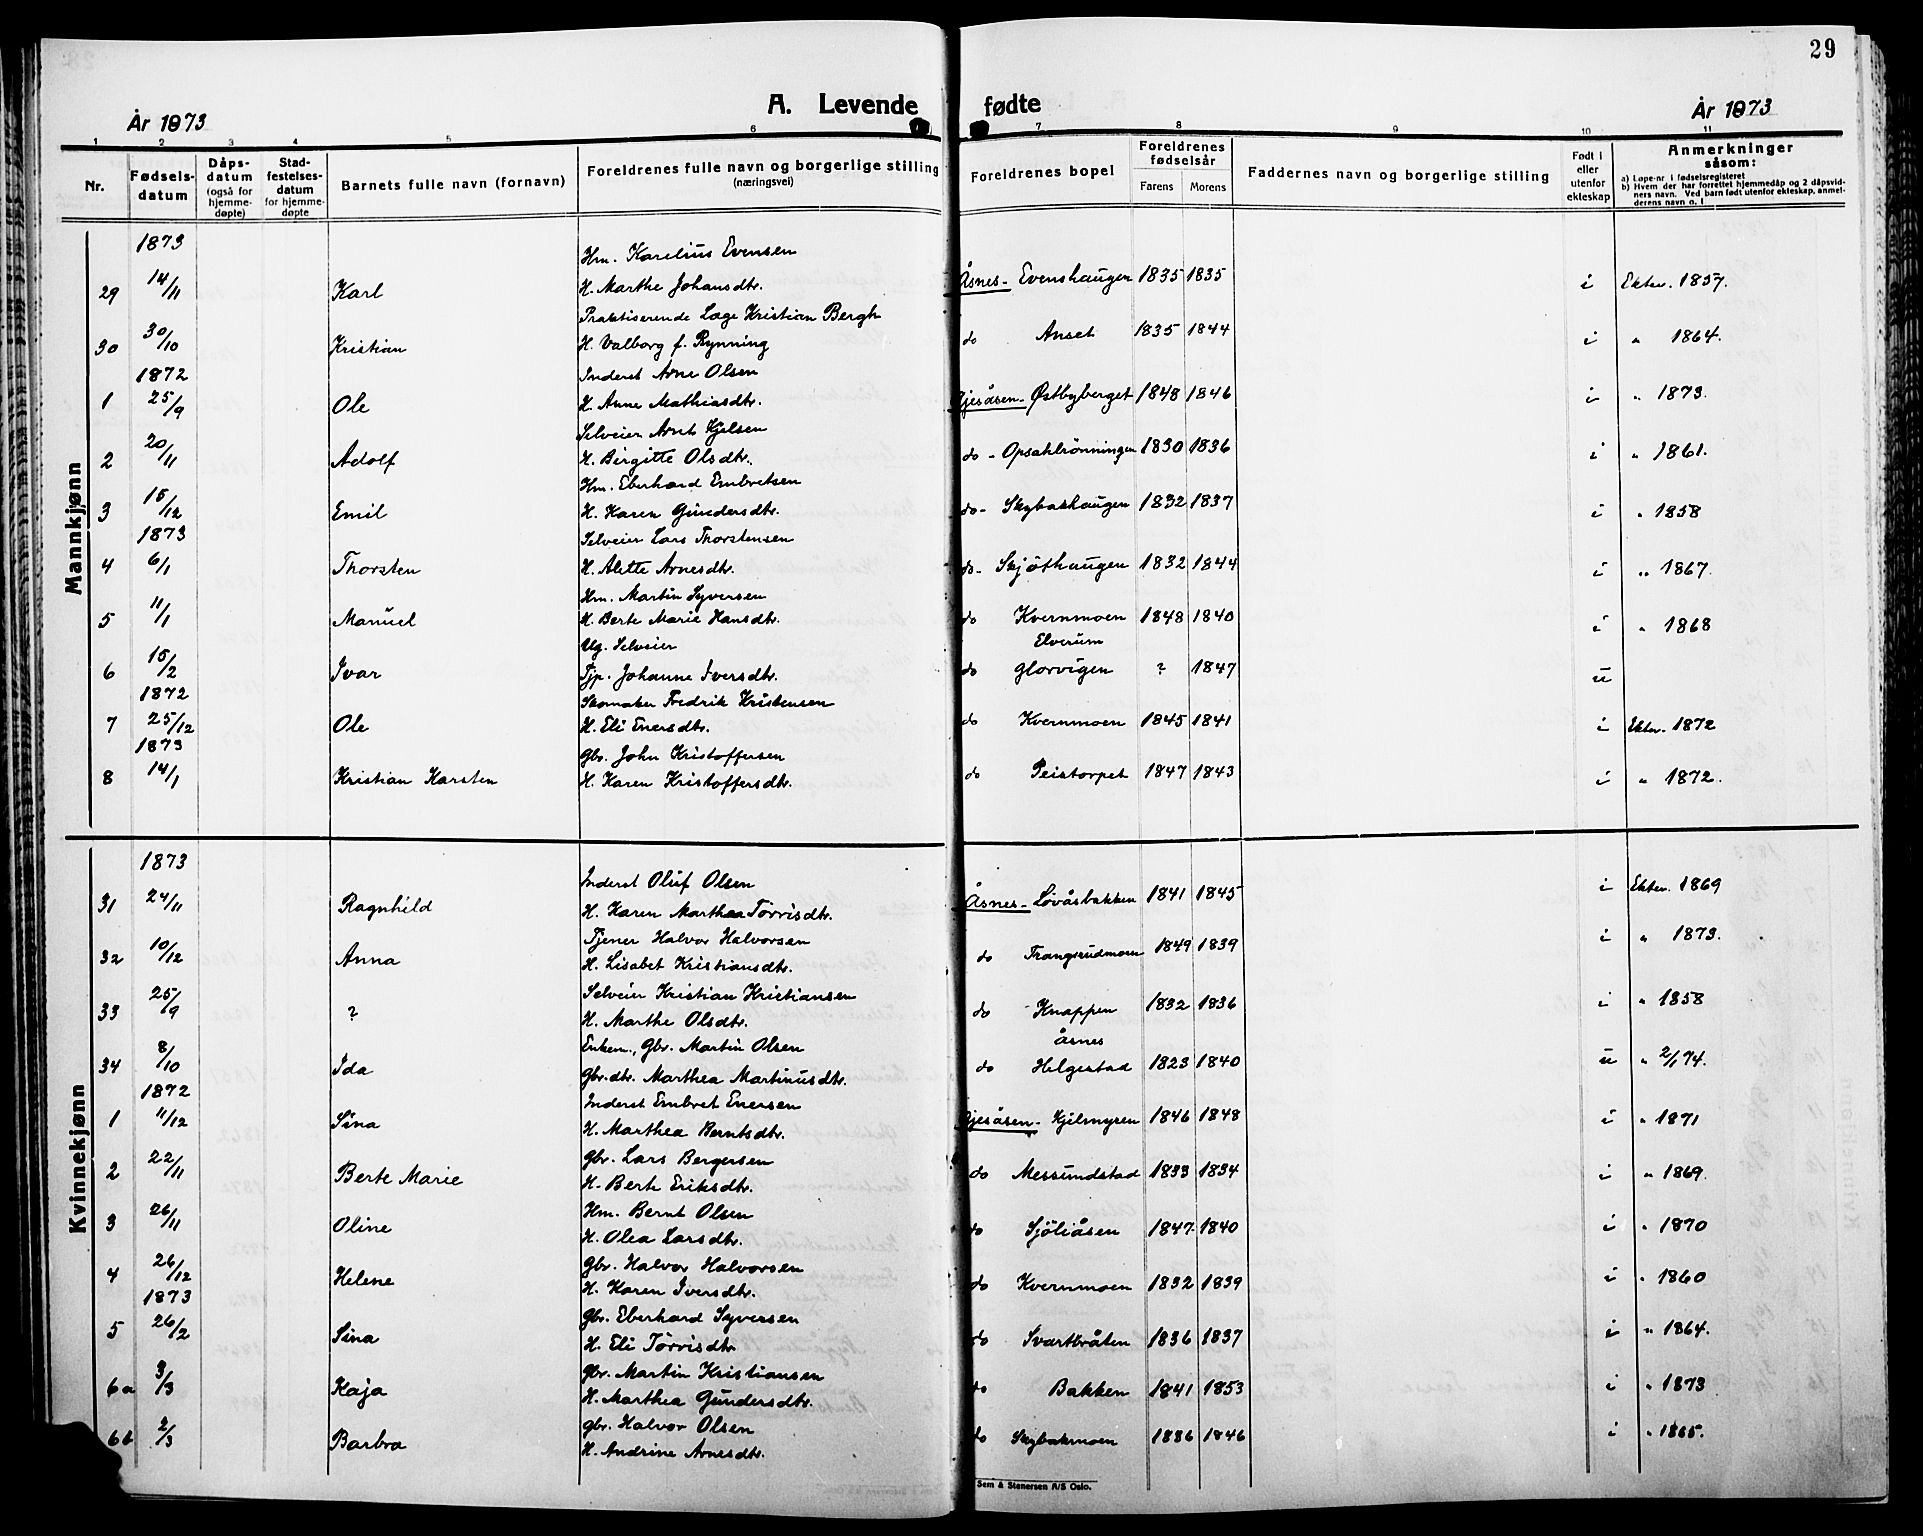 29
A. Levende fødte
År 1873
År 1873
1 2 3 4 5 6 7 8 9 10 11
Nr. Fødselsdatum Dåpsdatum (også for hjemmedøpte) Stadfestelsesdatum for hjemmedøpte Barnets fulle navn (fornavn) Foreldrenes fulle navn og borgerlige stilling (næringsvei) Foreldrenes bopel Foreldrenes fødselsår Farens Morens Faddernes navn og borgerlige stilling Født i eller utenfor ekteskap Anmerkninger såsom: a) Løpe-nr i fødselsregisteret b) Hvem der har forrettet hjemmedåp og 2 dåpsvidners navn. Ved barn født utenfor ekteskap, anmelderens navn o. l
Mannkjønn
1873
Hm. Karelius Evensen
29 14/11 Karl H. Marthe Johansdtr. Åsnes- Evenshaugen 1835 1835 i Ektev. 1857.
Praktiserende Læge Kristian Bergh
30 30/10 Kristian H. Valborg f. Rynning do Anset 1835 1844 i " 1864.
1872 Inderst Arne Olsen
1 25/9 Ole H. Anne Mathiasdtr. Gjesåsen- Østbyberget 1848 1846 i " 1873.
Selveier Arnt Kjelsen
2 20/11 Adolf H. Birgitte Olsdtr. do - Opsahlrönningen 1830 1836 i " 1861.
Hm. Eberhard Embretsen
3 15/12 Emil H. Karen Gundersdtr. do- Skybakhaugen 1832 1837 i " 1858
1873 Selveier Lars Thorstensen
4 6/1 Thorsten H. Alette Arnesdtr. do- Skjöthaugen 1832 1844 i " 1867.
Hm. Martin Syversen
5 11/1 Manuel H. Berte Marie Hansdtr. do Kvernmoen 1848 1840 i " 1868
Ug. Selveier Elverum
6 15/2 Ivar Tjp. Johanne Iversdtr. do Glorvigen ? 1847 u
1872 Skomaker Fredrik Kristensen
7 25/12 Ole H. Eli Enersdtr. do Kvernmoen 1845 1841 i Ektev. 1872
1873 Gbr. John Kristoffersen
8 14/1 Kristian Karsten H. Karen Kristoffersdtr. do Peistorpet 1847 1843 i " 1872.
Kvinnekjønn
1873
Inderst Oluf Olsen
31 24/11 Ragnhild H. Karen Marthea Torrisdtr. Åsnes- Lövåsbakken 1841 1845 i Ektev. 1869
Tjener Halvor Halvorsen
32 10/12 Anna H. Lisabet Kristiansdtr. do Trangsrudmoen 1849 1839 i " 1873.
Selveier Kristian Kristiansen
33 25/9 ? H. Marthe Olsdtr. do Knappen 1832 1836 i " 1858
Enkem., Gbr. Martin Olsen Åsnes
34 8/10 Ida Gbr.dtr. Marthea Martinusdtr. do Helgestad 1823 1840 u " 2/1 74.
1872 Inderst Embret Enersen
1 11/12 Sina H. Marthea Berntsdtr. Gjesåsen- Kjelmyren 1846 1848 i " 1871
Gbr. Lars Bergersen
2 22/11 Berte Marie H. Berte Eriksdtr. do Messundstad 1833 1834 i " 1869.
Hm. Bernt Olsen
3 26/11 Oline H. Olea Larsdtr. do Sjöliåsen 1847 1840 i " 1870
Gbr. Halvor Halvorsen
4 26/12 Helene H. Karen Iversdtr. do Kvernmoen 1832 1839 i " 1860
1873 Gbr. Eberhard Syversen
5 26/2 Sina H. Eli Torrisdtr do Svartbråten 1836 1837 i " 1864.
Gbr. Martin Kristiansen
6a 3/3 Kaja H. Marthea Gundersdtr. do Bakken 1841 1853 i " 1873
Gbr. Halvor Olsen
6b 2/3 Barbra H. Andrine Arnesdtr. do Skybakmoen 1836 1846 i " 1865.
Sem & Stenersen A/S Oslo.